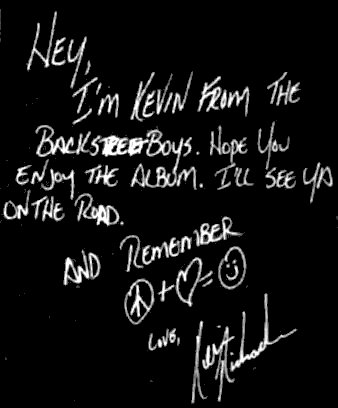 HEY,
I'M KEVIN FROM THE
BACKSTREETBOYS. HOPE YOU
ENJOY THE ALBUM. I'LL SEE YA
ON THE ROAD.
AND REMEMBER
☮+♡=☺
LOVE,